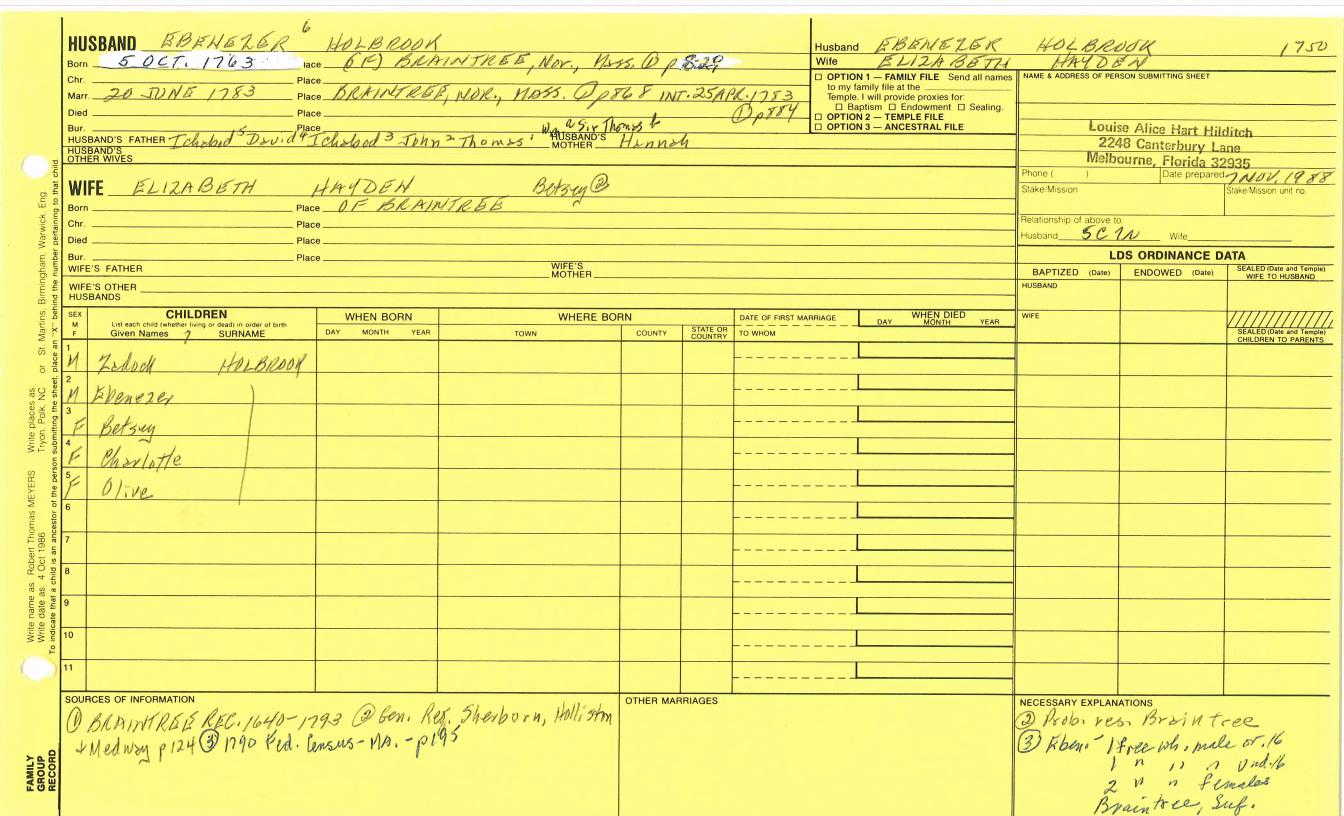 6
HUSBAND EBENEZER HOLBROOK
Born 5 OCT. 1763 Place (F) BRAINTREE, Nor., Mass. ① p 829
Chr. Place
Marr. 20 JUNE 1783 Place BRAINTREE, NOR., MASS. ① p868 INT. 25 APR. 1783
Died Place ① p884
Bur. Place Wm 2 Sir Thomas 6
HUSBAND'S FATHER Ichabod 5 David 4 Ichabod 3 John 2 Thomas 1 HUSBAND'S MOTHER Hannah
HUSBAND'S OTHER WIVES
WIFE ELIZABETH HAYDEN Betsey ②
Born Place OF BRAINTREE
Chr. Place
Died Place
Bur. Place
WIFE'S FATHER WIFE'S MOTHER
WIFE'S OTHER HUSBANDS
Husband EBENEZER HOLBROOK 1750
Wife ELIZABETH HAYDEN
☐ OPTION 1 — FAMILY FILE Send all names
to my family file at the
Temple. I will provide proxies for:
☐ Baptism ☐ Endowment ☐ Sealing.
☐ OPTION 2 — TEMPLE FILE
☐ OPTION 3 — ANCESTRAL FILE
NAME & ADDRESS OF PERSON SUBMITTING SHEET
Louise Alice Hart Hilditch
2248 Canterbury Lane
Melbourne, Florida 32935
Phone ( ) Date prepared 7 NOV. 1988
Stake/Mission Stake/Mission unit no.
Relationship of above to:
Husband 5C 7N Wife
LDS ORDINANCE DATA
BAPTIZED (Date) ENDOWED (Date) SEALED (Date and Temple) WIFE TO HUSBAND
HUSBAND
WIFE
SEALED (Date and Temple) CHILDREN TO PARENTS
SEX M F
CHILDREN
List each child (whether living or dead) in order of birth
Given Names ? SURNAME
WHEN BORN
DAY MONTH YEAR
WHERE BORN
TOWN COUNTY STATE OR COUNTRY
DATE OF FIRST MARRIAGE
TO WHOM
WHEN DIED
DAY MONTH YEAR
1 M Zadock HOLBROOK
2 M Ebenezer
3 F Betsey
4 F Charlotte
5 F Olive
6
7
8
9
10
11
SOURCES OF INFORMATION
① BRAINTREE REC. 1640-1793 ② Gen. Reg. Sherborn, Holliston
+ Medway p124 ③ 1790 Fed. Census - MA. - p195
OTHER MARRIAGES
NECESSARY EXPLANATIONS
② Prob. res. Braintree
③ Eben. 1 free wh. male ov. 16
1 " " " und. 16
2 " " females
Braintree, Suf.
Write name as: Robert Thomas MEYERS Write places as: Tryon, Polk, NC or St. Martins, Birmingham, Warwick, Eng
Write date as: 4 Oct 1986
To indicate that a child is an ancestor of the person submitting the sheet, place an "X" behind the number pertaining to that child
FAMILY GROUP RECORD